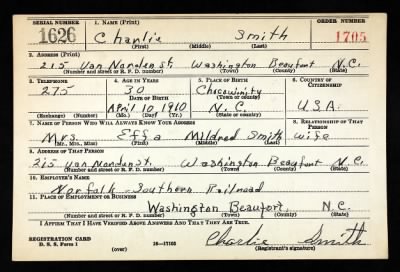 SERIAL NUMBER 1. NAME (Print) ORDER NUMBER
1626 Charlie Smith 1705
(First) (Middle) (Last)
2. ADDRESS (Print)
215 Van Norden St. Washington Beaufort N.C.
(Number and street or R. F. D. number) (Town) (County) (State)
3. TELEPHONE 4. AGE IN YEARS 5. PLACE OF BIRTH 6. COUNTRY OF CITIZENSHIP
275 30 Chocowinity
DATE OF BIRTH (Town or county)
April 10, 1910 N.C. U.S.A.
(Exchange) (Number) (Mo.) (Day) (Yr.) (State or country)
7. NAME OF PERSON WHO WILL ALWAYS KNOW YOUR ADDRESS 8. RELATIONSHIP OF THAT PERSON
Mrs. Effa Mildred Smith wife
(Mr., Mrs., Miss) (First) (Middle) (Last)
9. ADDRESS OF THAT PERSON
215 Van Norden St. Washington Beaufort N.C.
(Number and street or R. F. D. number) (Town) (County) (State)
10. EMPLOYER'S NAME
Norfolk Southern Railroad
11. PLACE OF EMPLOYMENT OR BUSINESS
Washington Beaufort, N.C.
(Number and street or R. F. D. number) (Town) (County) (State)
I AFFIRM THAT I HAVE VERIFIED ABOVE ANSWERS AND THAT THEY ARE TRUE.
REGISTRATION CARD
D. S. S. Form 1 (over) 16—17105 Charlie Smith
(Registrant's signature)